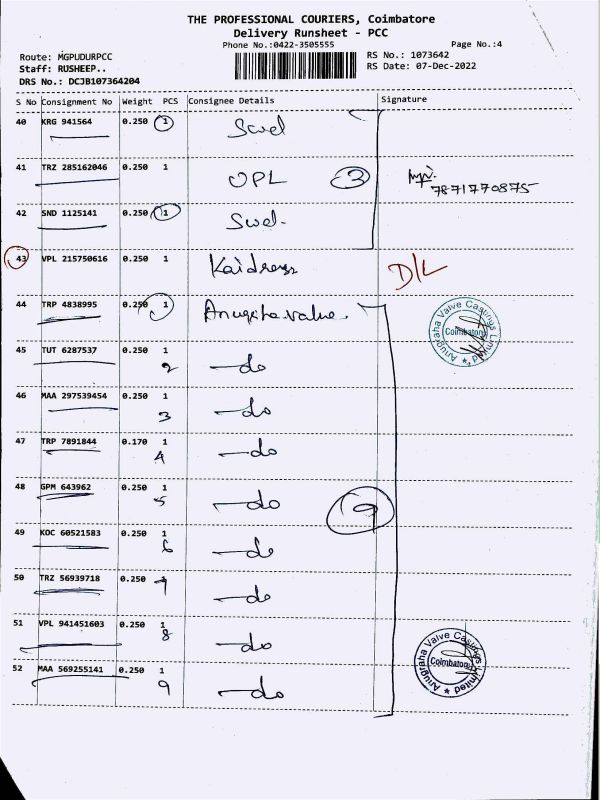 THE PROFESSIONAL COURIERS, Coimbatore
Delivery Runsheet - PCC
Phone No.:0422-3505555 Page No.:4
Route: MGPUDURPCC RS No.: 1073642
Staff: RUSHEEP.. RS Date: 07-Dec-2022
DRS No.: DCJB107364204
S No Consignment No Weight PCS Consignee Details Signature
40 KRG 941564 0.250 1 Swel
41 TRZ 285162046 0.250 1 OPL 3 7871770875
42 SND 1125141 0.250 1 Swel-
43 VPL 215750616 0.250 1 D/L
44 TRP 4838995 0.250 1 Anugraha Valve Castings Limited Coimbatore
45 TUT 6287537 0.250 1 2 -do
46 MAA 297539454 0.250 1 3 -do
47 TRP 7891844 0.170 1 4 -do
48 GPM 643962 0.250 1 5 -do 9
49 KOC 60521583 0.250 1 6 -do
50 TRZ 56939718 0.250 1 7 -do
51 VPL 941451603 0.250 1 8 -do
52 MAA 569255141 0.250 1 9 -do Anugraha Valve Castings Limited Coimbatore